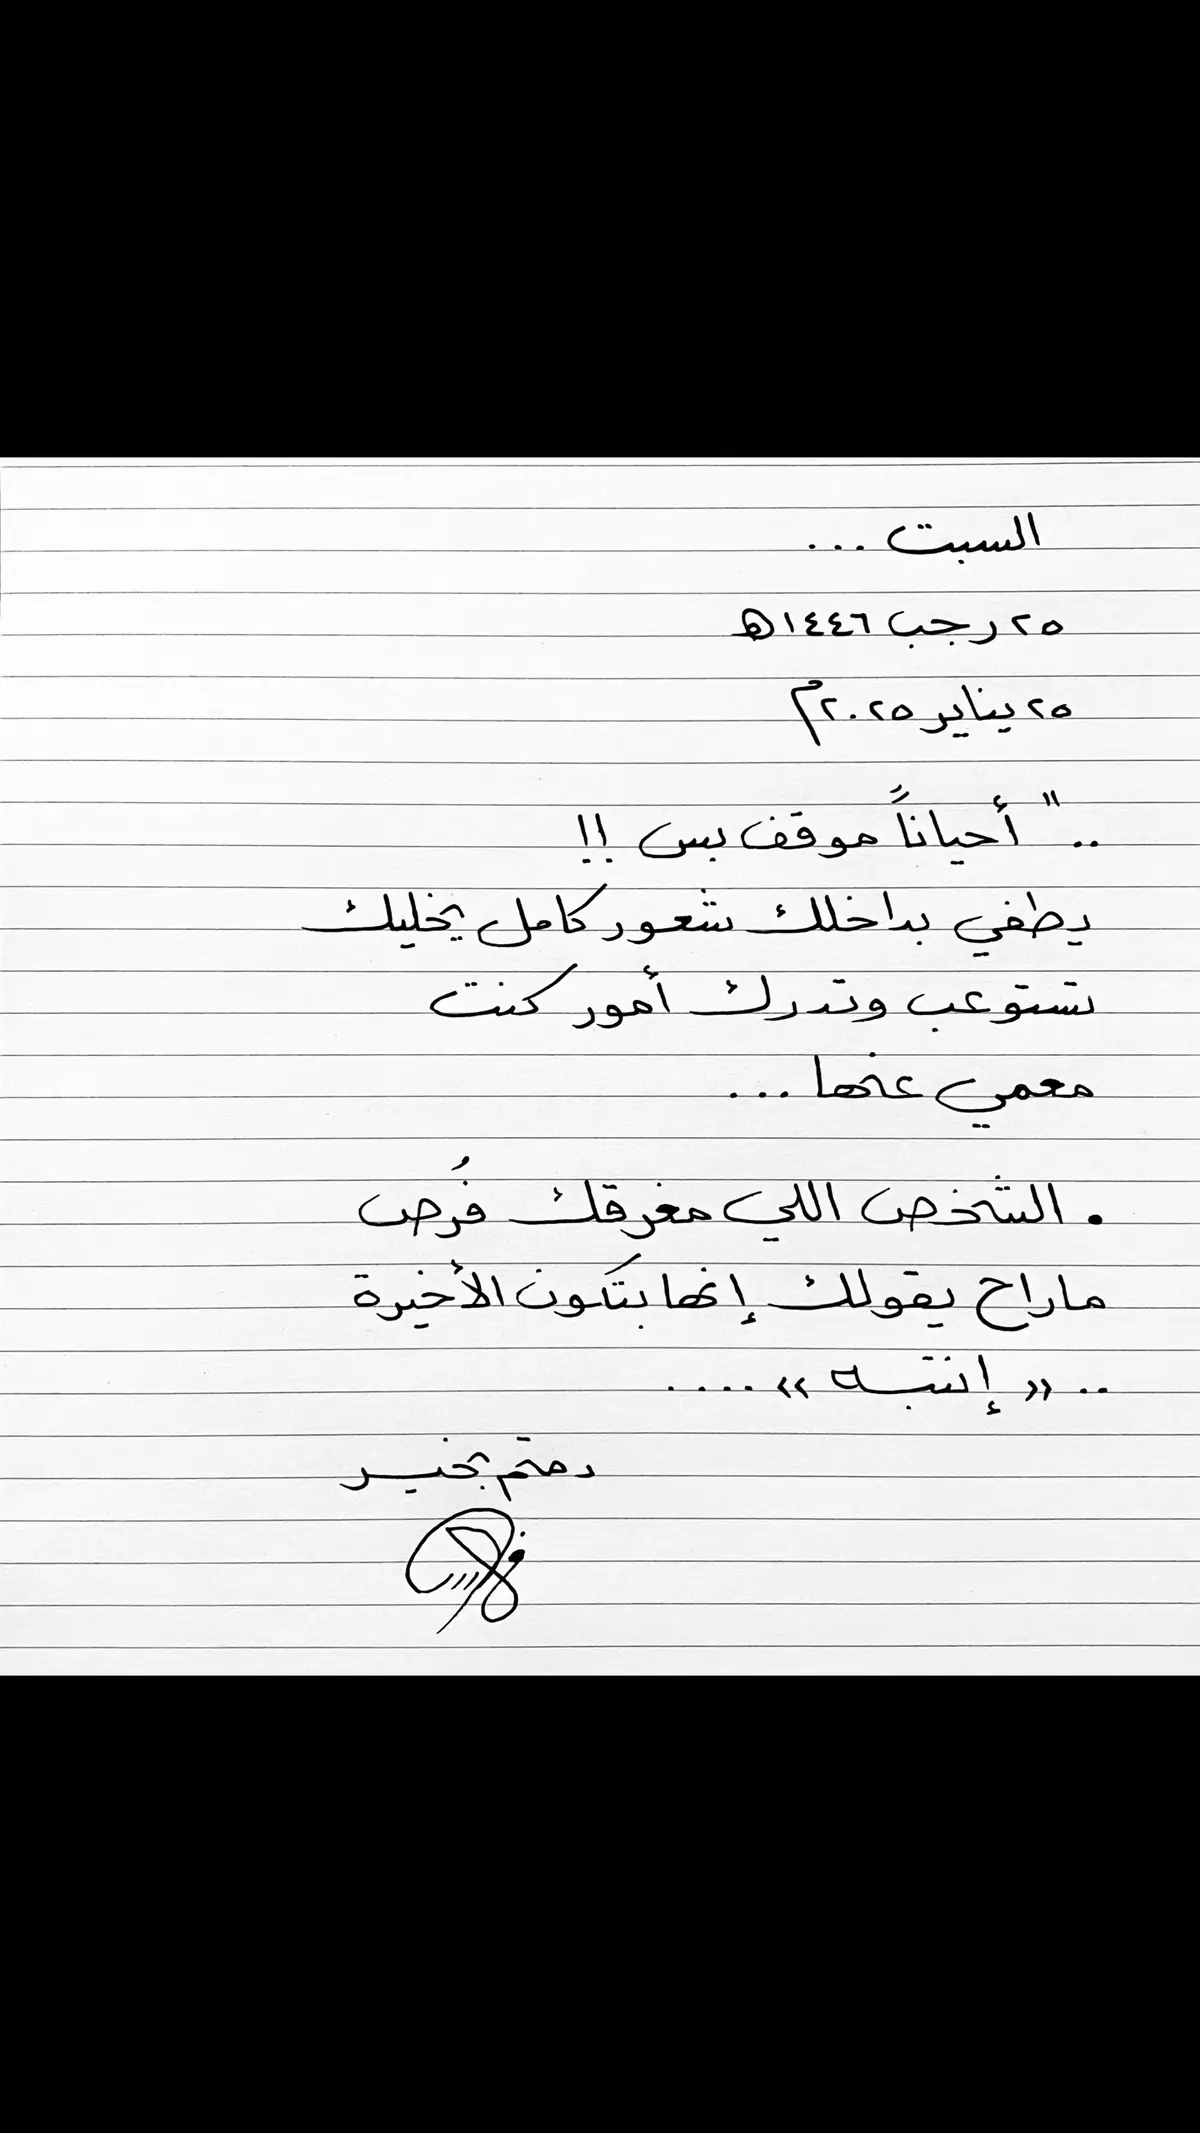 السبت ...
٢٥ رجب ١٤٤٦هـ
٢٥ يناير ٢٠٢٥م
.. " أحياناً موقف بس !!
يطفي بداخلك شعور كامل يخليك
تستوعب وتدرك أمور كنت
معمي عنها ...
• الشخص اللي مغرقك فُرص
ماراح يقولك إنها بتكون الأخيرة
.. « إنتبه » ....
دمتم بخير